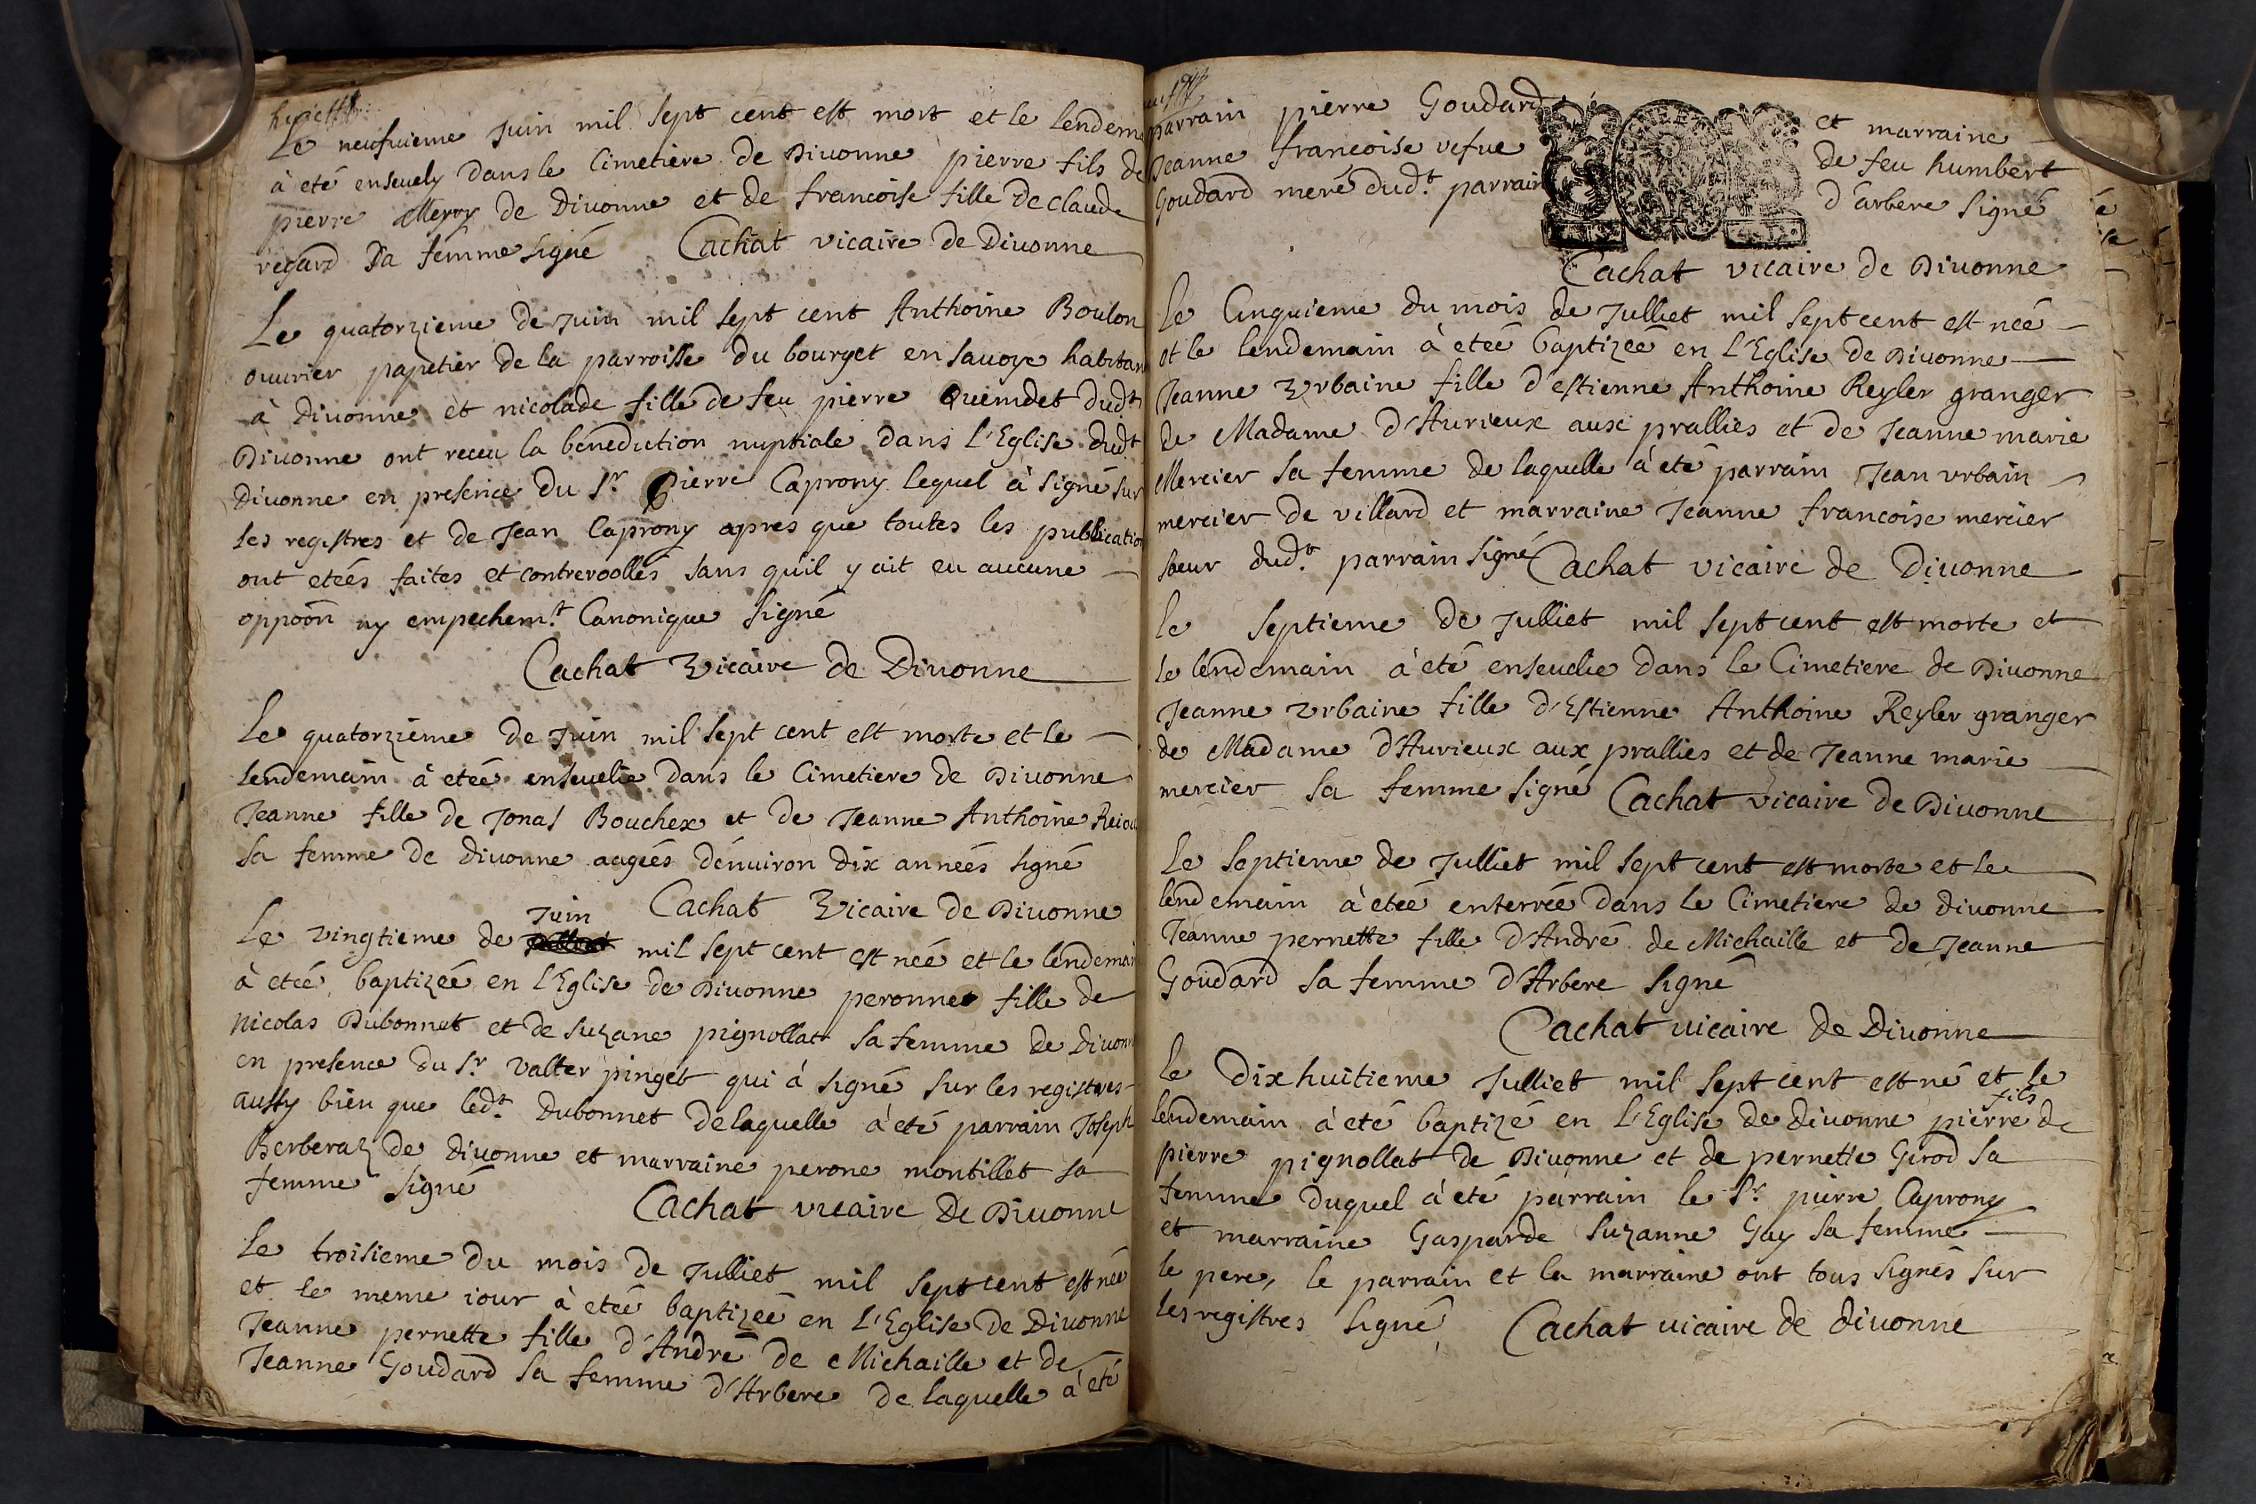 Le neufuieme Juin mil sept cent est mort et le lendem
à eté enseuely dans le Cimetiere de Diuonne pierre fils de
pierre Meroy de Diuonne et de francoise fille de claude
regard sa femme signé Cachat vicaire de Diuonne
Le quatorzieme de Juin mil sept cent Anthoine Boulon
ouurier papetier de la parroisse du bourget en sauoye habitan
à Diuonne et nicolade fille de feu pierre Quemdet dud.t
Diuonne ont receu la benediction nuptiale dans l'Eglise dud.t
Diuonne en presence du Sr pierre Caprony lequel à signé sur
les registres et de Jean Caprony apres que toutes les publication
ont eteés faites et contreroollés sans qu'il y ait eu aucune
oppoôn ny empechem.t Canonique signé
Cachat Vicaire de Diuonne
Le quatorzieme de Juin mil sept cent est morte et le
lendemain à eteé enseuelie dans le Cimetiere de Diuonne
Jeanne fille de Jonas Bouchex et de Jeanne Anthoine
sa femme de Diuonne aageés dénuiron dix anneés signé
Cachat Vicaire de Diuonne
Le vingtieme de Juin mil sept cent est neé et le lendemai
à eteé baptizeé en l'Eglise de Diuonne peronne fille de
Nicolas Dubonnet et de Suzane pignollat sa femme de Diuonn
en presence du Sr Valter pinget qui à signé sur les registres
aussy bien que led.t Dubonnet de laquelle à eté parrain Joseph
Berberaz de Diuonne et marraine perone montillet sa
femme signé Cachat vicaire de Diuonne
Le troisieme du mois de Julliet mil sept cent est neé
et le meme iour à eteé baptizeé en l'Eglise de Diuonne
Jeanne pernette fille d'André de Michaille et de
Jeanne Goudard sa femme d'Arbere de laquelle à eté
parrain pierre Goudard et marraine
Jeanne francoise vefue de feu humbert
Goudard meré dud.t parrain d'arbere signé
Cachat vicaire de Diuonne
Le Cinquieme du mois de Julliet mil sept cent est neé
et le lendemain à eteé baptizeé en l'Eglise de Diuonne
Jeanne Vrbaine fille d'estienne Anthoine Reyler granger
de Madame d'Aurieux aux prallies et de Jeanne marie
Mercier sa femme de laquelle à eté parrain Jean vrbain
mercier de villard et marraine Jeanne francoise mercier
soeur dud.t parrain signé Cachat vicaire de Diuonne
Le septieme de Julliet mil sept cent est morte et
le lendemain à eté enseuelie dans le Cimetiere de Diuonne
Jeanne Vrbaine fille d'Estienne Anthoine Reyler granger
de Madame d'Aurieux aux prallies et de Jeanne marie
mercier sa femme signé Cachat vicaire de Diuonne
Le septieme de Julliet mil sept cent est morte et le
lendemain à eteé enterreé dans le Cimetiere de diuonne
Jeanne pernette fille d'André de Michaille et de Jeanne
Goudard sa femme d'Arbere signé
Cachat uicaire de Diuonne
Le Dixhuitieme Julliet mil sept cent est né et le
lendemain à eté baptizé en l'Eglise de diuonne pierre fils de
pierre pignollat de Diuonne et de pernette Girod sa
femme duquel à eté parrain le Sr pierre Caprony
et marraine Gasparde Suzanne Gay sa femme
le pere, le parrain et la marraine ont tous signés sur
les registres signé Cachat uicaire de diuonne